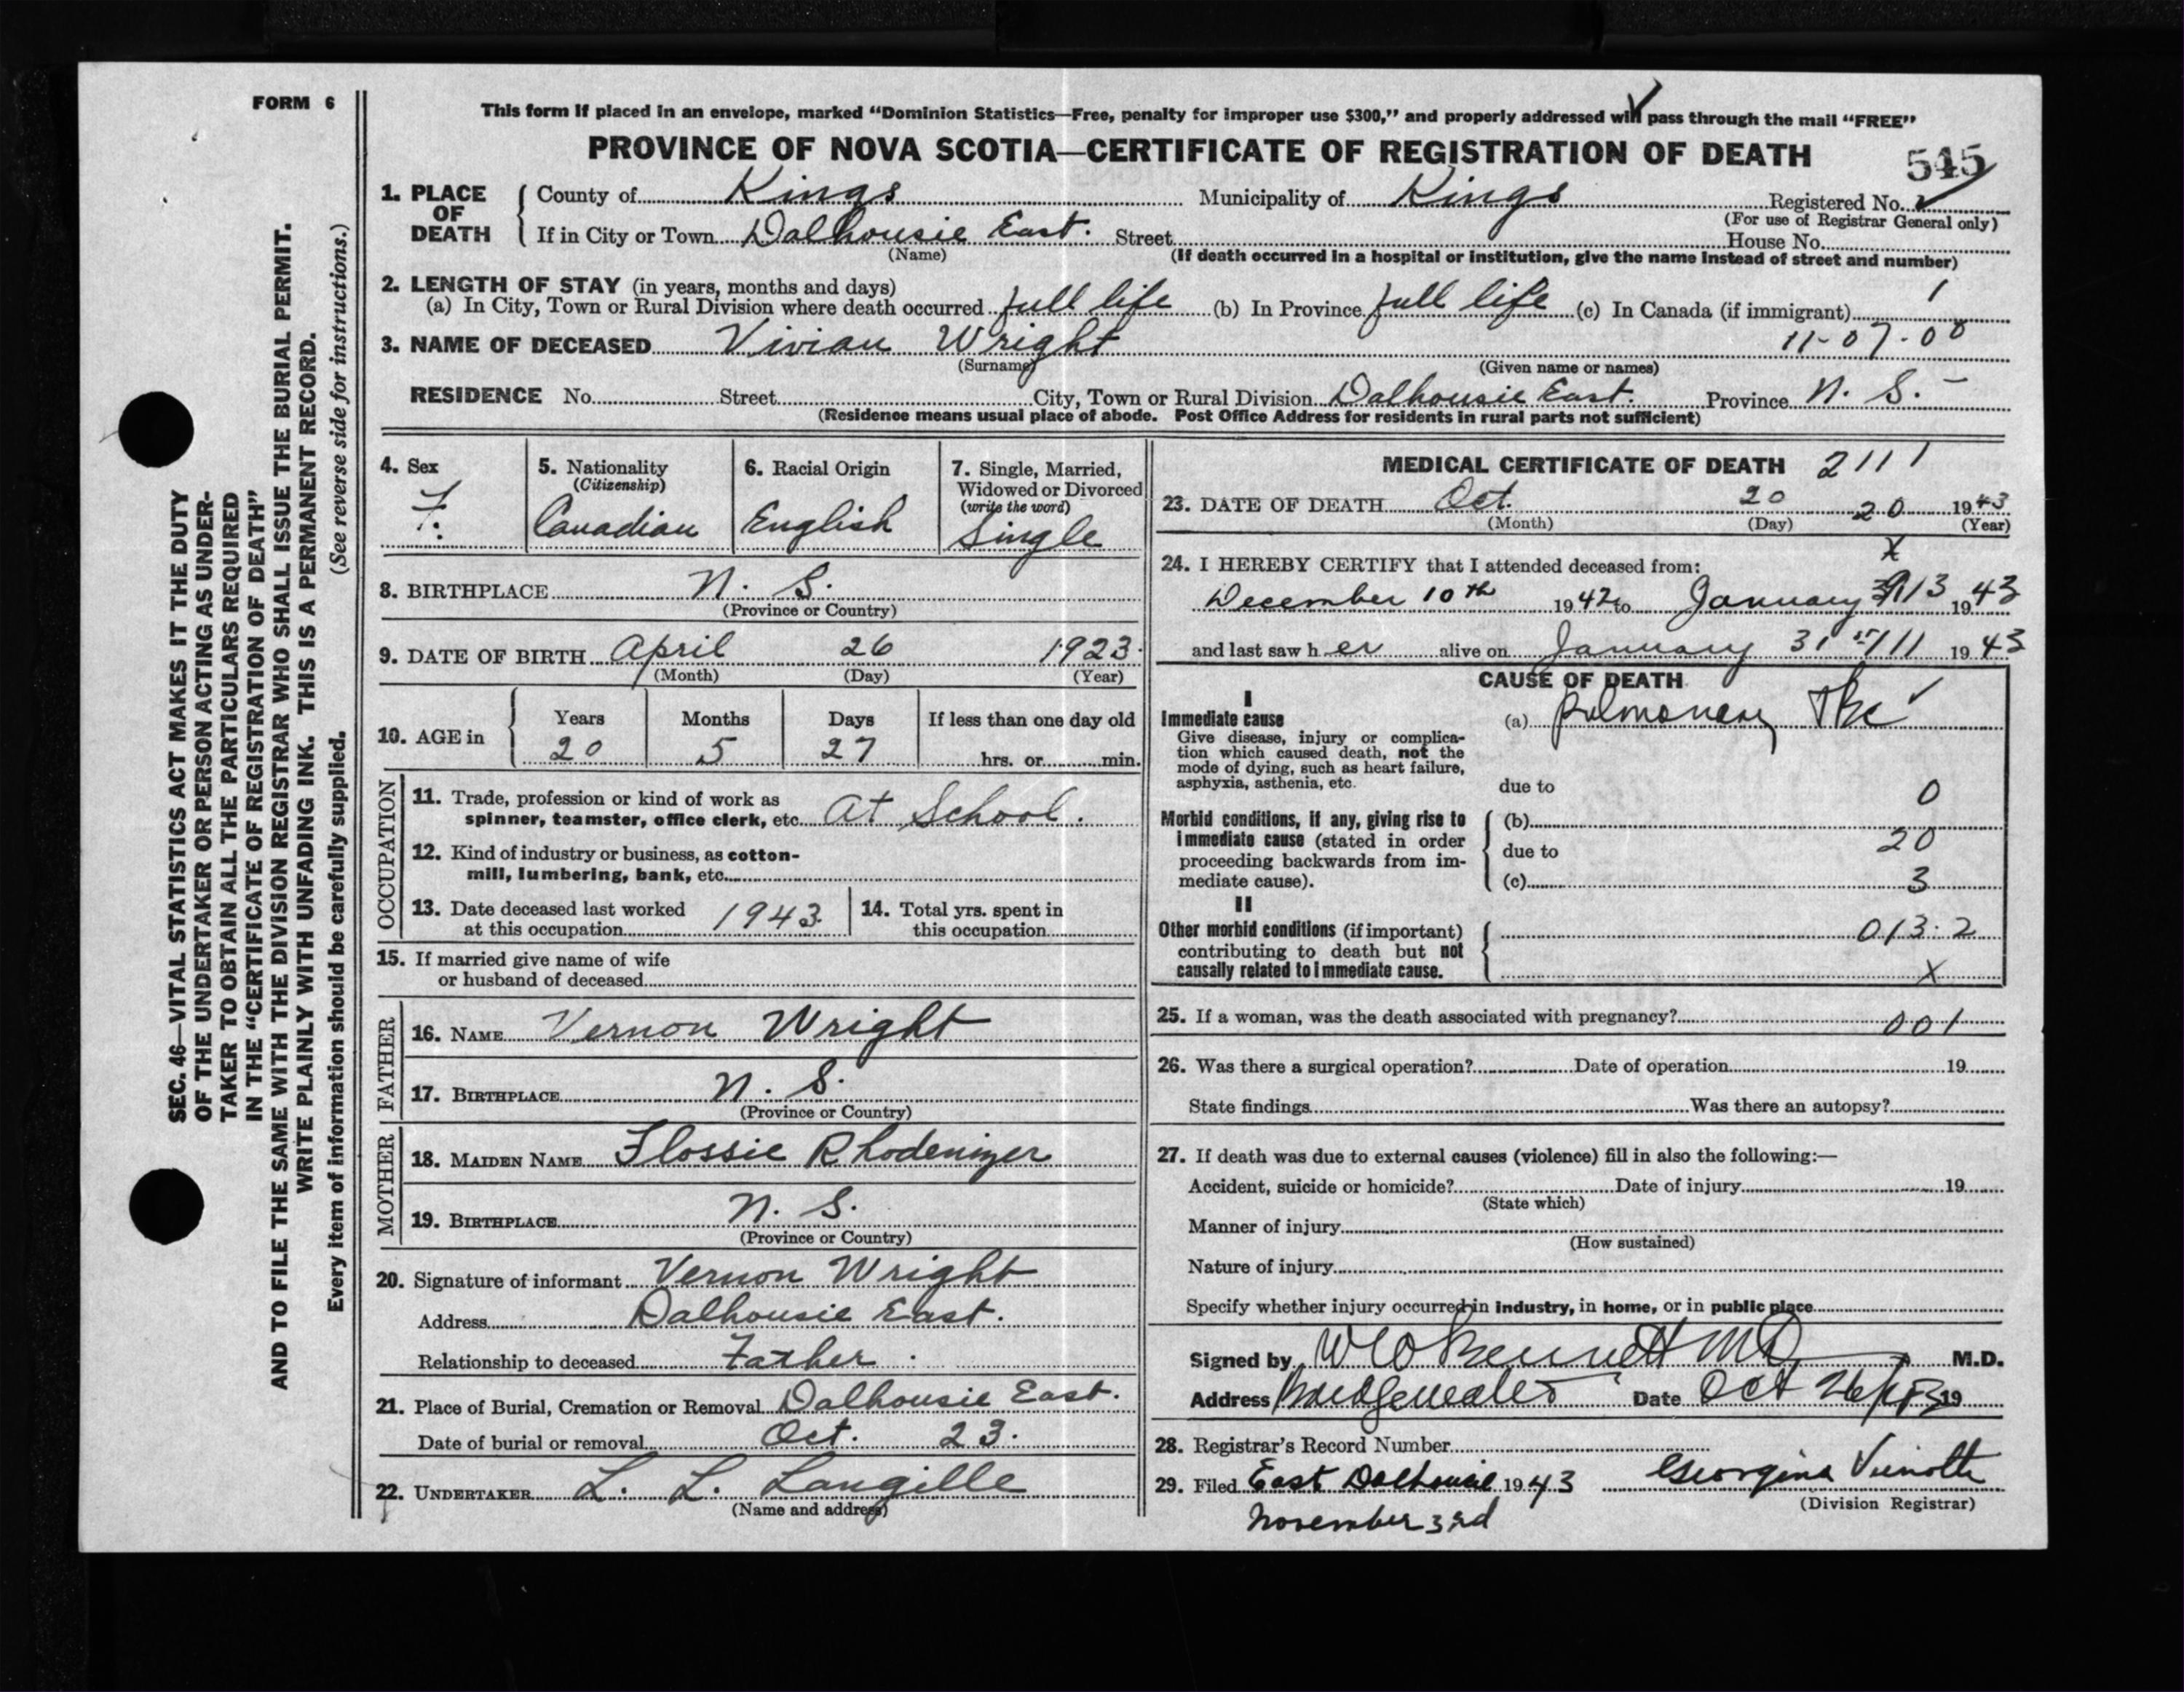 FORM 6
This form if placed in an envelope, marked "Dominion Statistics—Free, penalty for improper use $300," and properly addressed will pass through the mail "FREE"
PROVINCE OF NOVA SCOTIA—CERTIFICATE OF REGISTRATION OF DEATH
545
1. PLACE OF DEATH
County of Kings Municipality of Kings Registered No.
(For use of Registrar General only)
If in City or Town Dalhousie East. Street House No.
(Name) (If death occurred in a hospital or institution, give the name instead of street and number)
2. LENGTH OF STAY (in years, months and days)
(a) In City, Town or Rural Division where death occurred full life (b) In Province full life (c) In Canada (if immigrant) 1
3. NAME OF DECEASED Vivian Wright 11-07-00
(Surname) (Given name or names)
RESIDENCE No. Street City, Town or Rural Division Dalhousie East. Province N. S. -
(Residence means usual place of abode. Post Office Address for residents in rural parts not sufficient)
4. Sex
F.
5. Nationality
(Citizenship)
Canadian
6. Racial Origin
English
7. Single, Married,
Widowed or Divorced
(write the word)
Single
8. BIRTHPLACE N. S.
(Province or Country)
9. DATE OF BIRTH April 26 1923.
(Month) (Day) (Year)
10. AGE in
Years Months Days If less than one day old
20 5 27 hrs. or min.
OCCUPATION
11. Trade, profession or kind of work as
spinner, teamster, office clerk, etc. At School.
12. Kind of industry or business, as cotton-
mill, lumbering, bank, etc.
13. Date deceased last worked
at this occupation 1943
14. Total yrs. spent in
this occupation
15. If married give name of wife
or husband of deceased
FATHER
16. NAME Vernon Wright
17. BIRTHPLACE N. S.
(Province or Country)
MOTHER
18. MAIDEN NAME Flossie Rhodenizer
19. BIRTHPLACE N. S.
(Province or Country)
20. Signature of informant Vernon Wright
Address Dalhousie East.
Relationship to deceased Father.
21. Place of Burial, Cremation or Removal Dalhousie East.
Date of burial or removal Oct. 23.
22. UNDERTAKER L. L. Langille
(Name and address)
MEDICAL CERTIFICATE OF DEATH 2111
23. DATE OF DEATH Oct. 20 20 1943
(Month) (Day) (Year)
24. I HEREBY CERTIFY that I attended deceased from: x
December 10th 1942 to January 1943
and last saw her alive on January 31st 1943
CAUSE OF DEATH
I
Immediate cause
Give disease, injury or complica-
tion which caused death, not the
mode of dying, such as heart failure,
asphyxia, asthenia, etc.
(a) Pulmonary Tbc
due to 0
Morbid conditions, if any, giving rise to
immediate cause (stated in order
proceeding backwards from im-
mediate cause).
(b)
due to 20
(c) 3
II
Other morbid conditions (if important)
contributing to death but not
causally related to immediate cause.
013.2
X
25. If a woman, was the death associated with pregnancy? 001
26. Was there a surgical operation? Date of operation 19
State findings Was there an autopsy?
27. If death was due to external causes (violence) fill in also the following:—
Accident, suicide or homicide? Date of injury 19
(State which)
Manner of injury
(How sustained)
Nature of injury
Specify whether injury occurred in industry, in home, or in public place
Signed by M.D.
Address Bridgewater Date Oct 26/43 19
28. Registrar's Record Number
29. Filed East Dalhousie 1943 Georgina
(Division Registrar)
November 3rd
SEC. 46—VITAL STATISTICS ACT MAKES IT THE DUTY
OF THE UNDERTAKER OR PERSON ACTING AS UNDER-
TAKER TO OBTAIN ALL THE PARTICULARS REQUIRED
IN THE "CERTIFICATE OF REGISTRATION OF DEATH"
AND TO FILE THE SAME WITH THE DIVISION REGISTRAR WHO SHALL ISSUE THE BURIAL PERMIT.
WRITE PLAINLY WITH UNFADING INK. THIS IS A PERMANENT RECORD.
Every item of information should be carefully supplied. (See reverse side for instructions.)